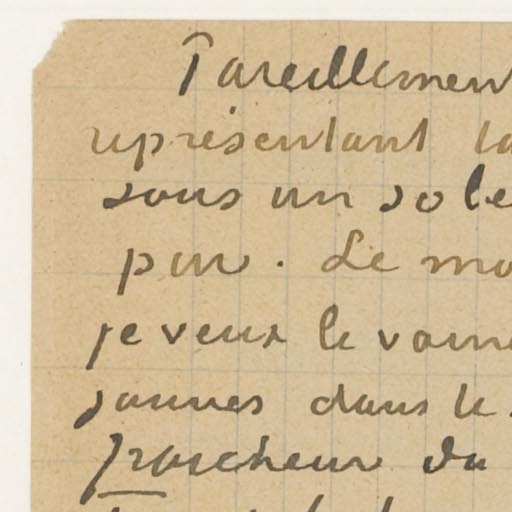 Pareillemen
représentant la
sous un sole
pur. Le mo
je veux le vainc
jaunes dans le
fraîcheur du